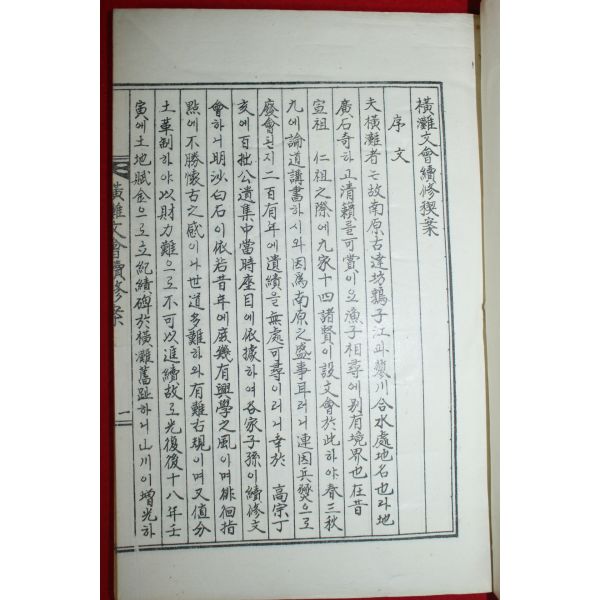 橫灘文會續修稧案
序文
夫橫灘者는故南原古達坊鶉子江과鶩川合水處地名也라地
廣石奇하고正清籟를可賞이으漁子相尋에別有境界也在昔
宣祖 仁祖之際에九家十四諸賢이設文會於此하야春三秋
九에論道講書하시와因爲南原之盛事耳러니連因兵燹으로
廢會된지二百有年에遺績을無處可尋이러니幸於 高宗丁
亥에百拙公遺集中當時座目에依據하여各家子孫이續修文
會하니明沙白石이依若昔年에庶幾有興學之風이며徘徊指
點에不勝懷古之感이나世道多難하와有難右規이며又值分
土革制하야以財力難으로不可以進續故로光復後十八年壬
寅에土地賦金으로立紀績碑於橫灘舊趾하니山川이增光하
橫灘文會續修案
一